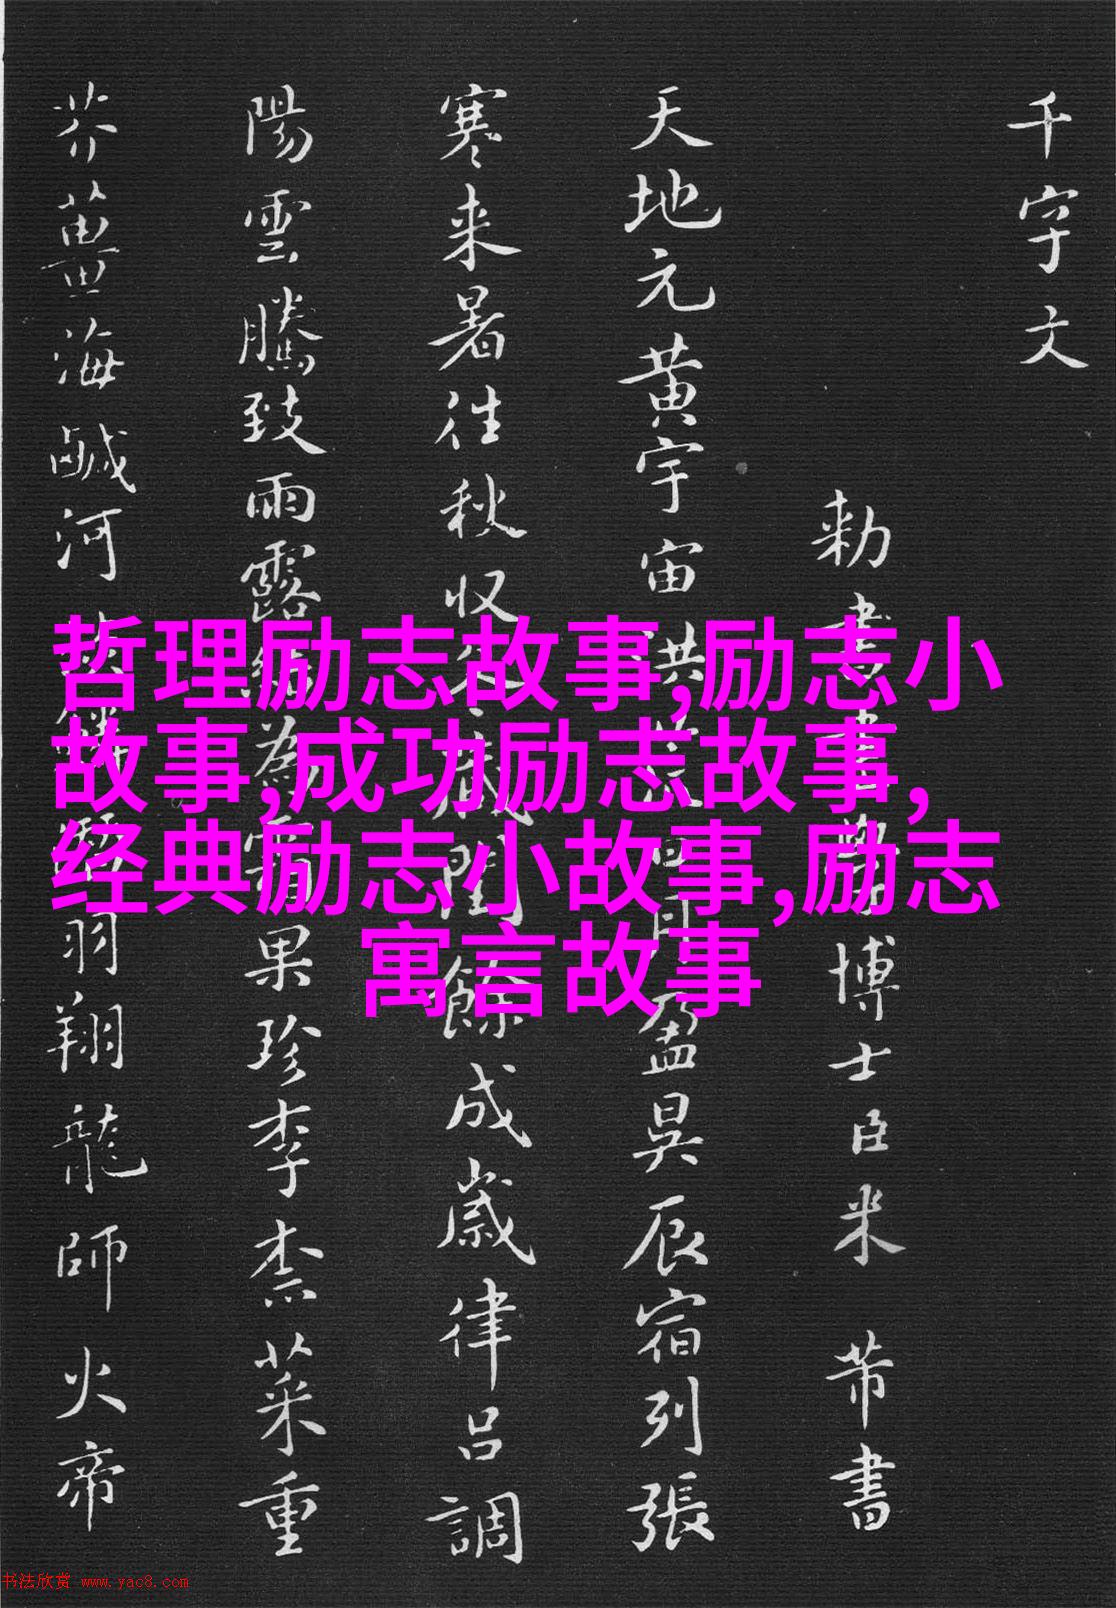 千字文
勅書博士臣米芾書
天地元黄宇宙洪荒日月盈昃辰宿列張
寒来暑往秋収冬藏閏餘成歲律吕調
陽雲騰致雨露結為霜果珍李柰菜重
芥薑海鹹河淡鱗潛羽翔龍師火帝
哲理励志故事,励志小
故事,成功励志故事,
经典励志小故事,励志
寓言故事
书法欣赏 www.yac8.com